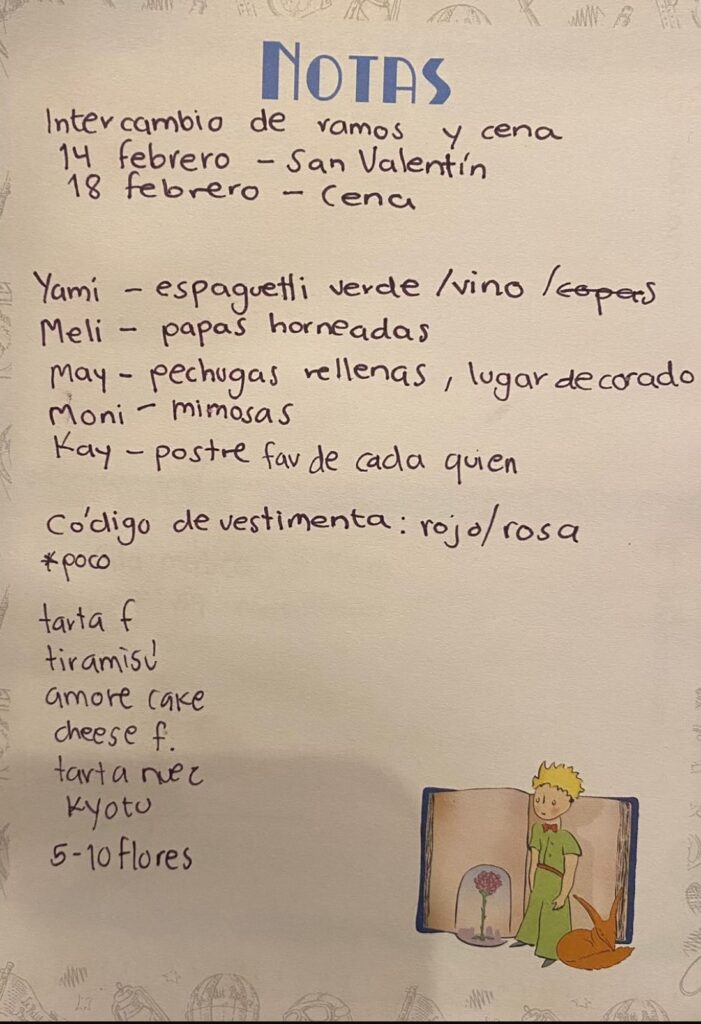 NOTAS
Intercambio de ramos y cena
14 febrero - San Valentín
18 febrero - Cena
Yami - espaguetti verde /vino /copers
Meli - papas horneadas
May - pechugas rellenas, lugar decorado
Moni - mimosas
Kay - postre fav de cada quien
Código de vestimenta: rojo/rosa
*poco
tarta f
tiramisú
amore cake
cheese f.
tarta nuez
Kyoto
5-10 flores